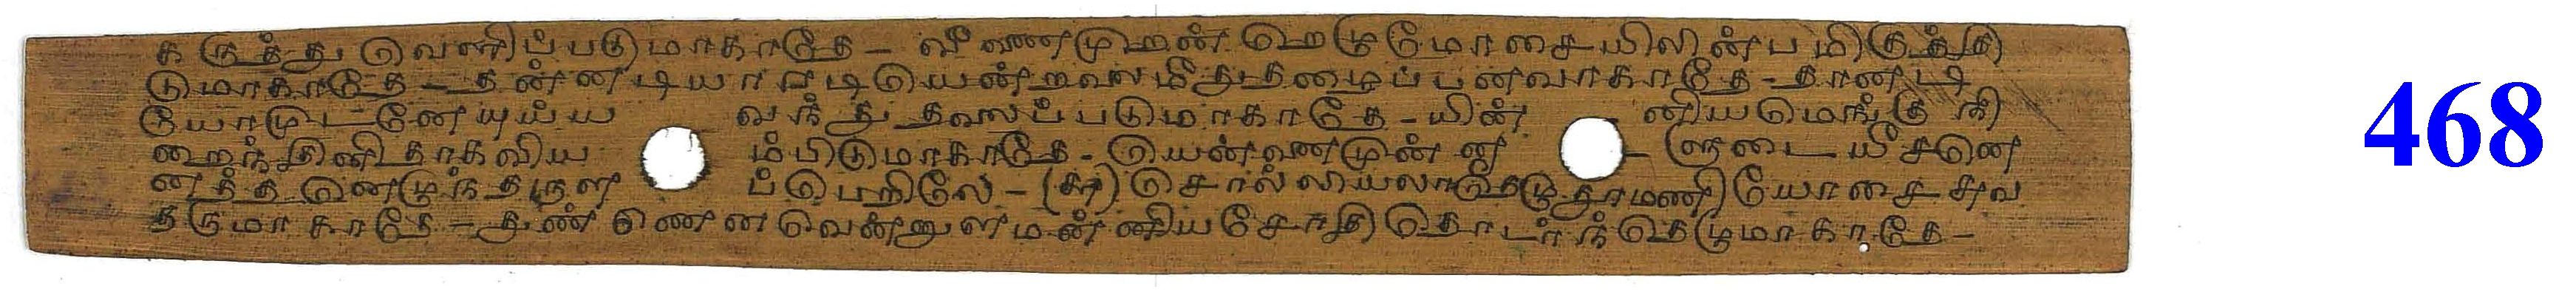 கருத்து வெளிப்படுமாகாதே - வீணைமுறண் றெழுமோசையிலின்பமிகுத்தி
டுமாகாதே - தன்னடியாரடியென்றலைமீதுதழைப்பனவாகாதே - தானடி
யோமுடனேயுய்ய வந்து தலைப்படுமாகாதே - யின்னியமெங்கு நி
றைந்தினிதாகவிய ம்பிடுமாகாதே - யென்னைமுன் னாளுடையீசனெ
னத்த னெழுந்தருளப்பெறிலே - (௩) சொல்லியலாதெழுதூமணியோசைசுவை
தருமாகாதே - துண்ணெனவென்னுளமன்னியசோதி தொடர்ந்தெழுமாகாதே -
468